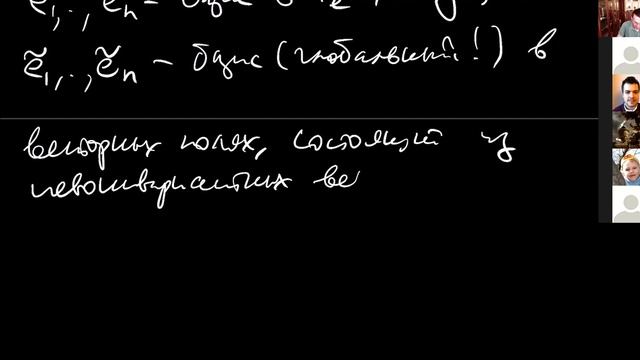 e₁, .., eₙ – базис в
ẽ₁, .., ẽₙ – базис (глобальный!) в
векторных полях, состоящий из
левоинвариантных ве